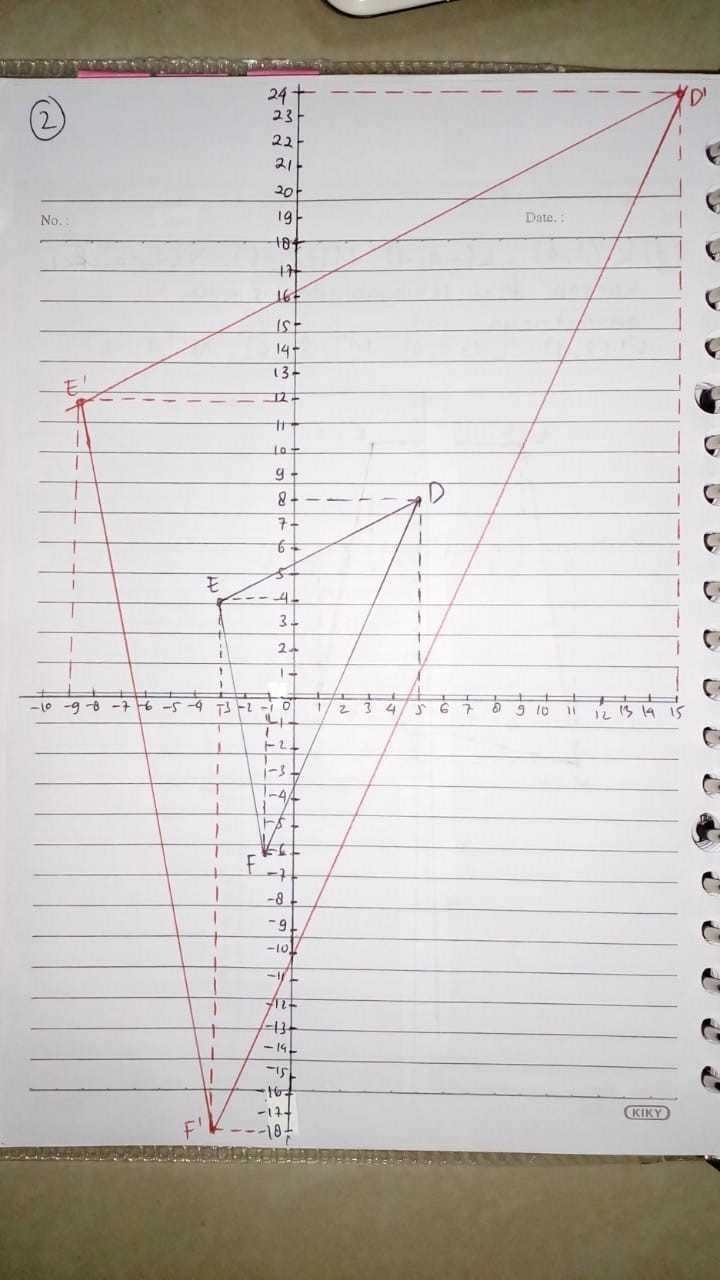 2
24
D'
23
22
21
20
No. :
19
Date. :
18
17
16
15
14
13
E'
12
11
10
9
8
D
7
6
5
E
4
3
2
1
-10 -9 -8 -7 -6 -5 -4 -3 -2 -1 0 1 2 3 4 5 6 7 8 9 10 11 12 13 14 15
-1
-2
-3
-4
-5
F
-6
-7
-8
-9
-10
-11
-12
-13
-14
-15
-16
-17
KIKY
F'
-18